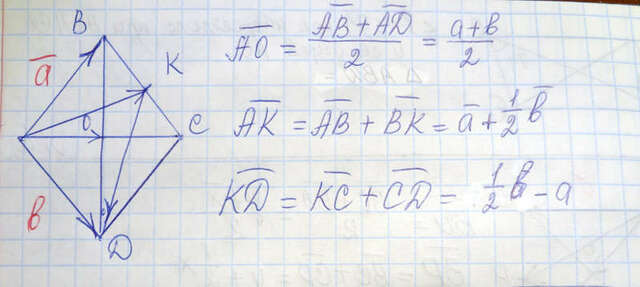 B
K
C
O
D
a̅
b
A̅O̅ = (A̅B̅ + A̅D̅)/2 = (a+b)/2
A̅K̅ = A̅B̅ + B̅K̅ = a̅ + 1/2 b̅
K̅D̅ = K̅C̅ + C̅D̅ = 1/2 b - a